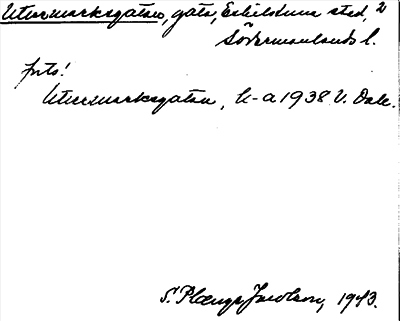 Utermarksgatan, gata, Eskilstuna stad, 2
Södermanlands l.
foto!
Utermarksgatan, k-a 1938 V. Dale.
S. Plænge Jacobson, 1943.